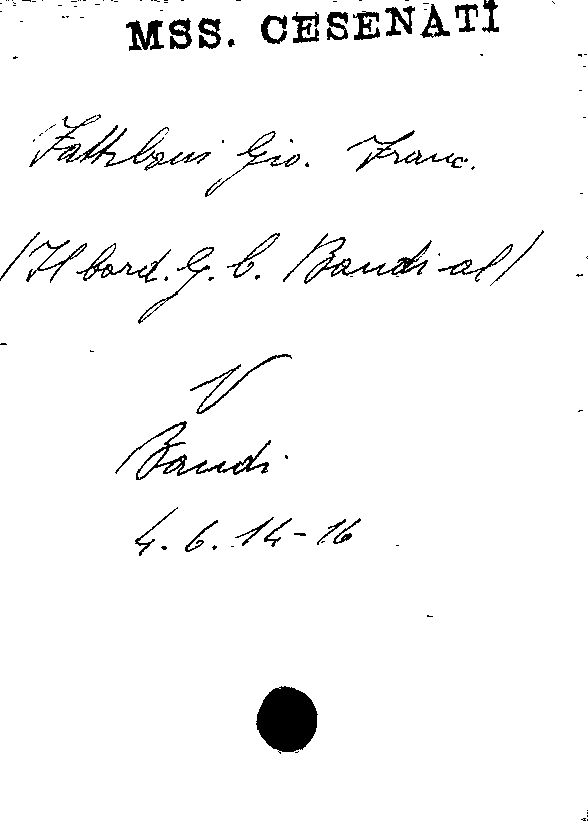 MSS. CESENATI
Fattiboni Gio. Franc.
(Il card. G. C. Bandi al)
V
Bandi
4. 6. 14-16